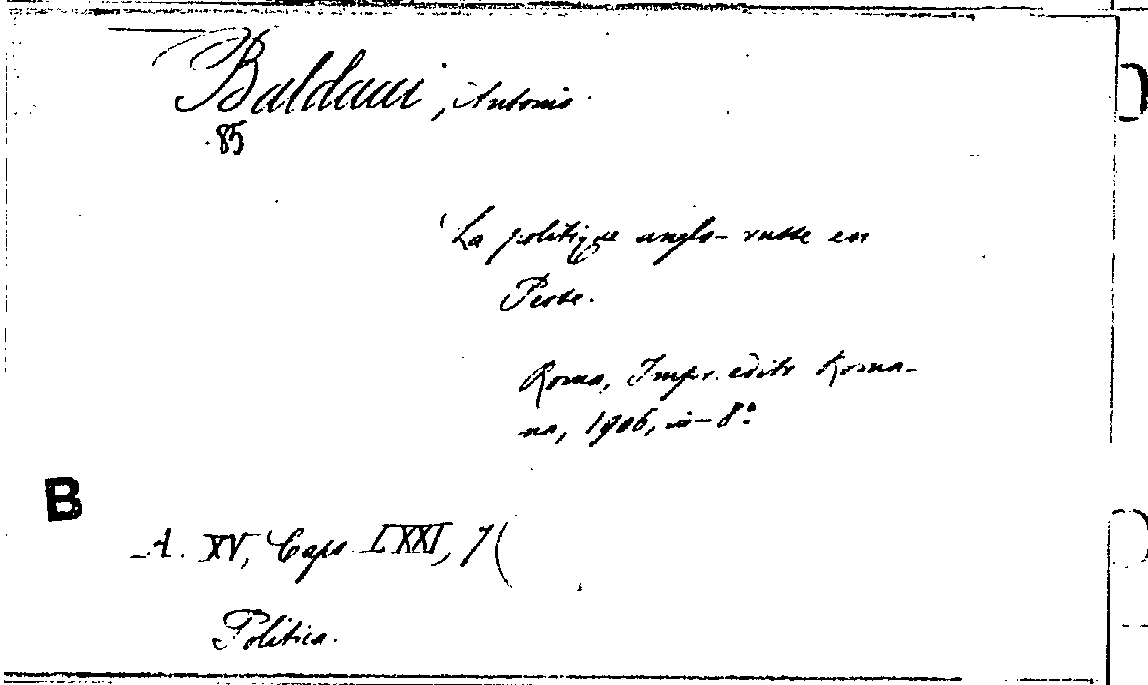 Baldani, Antonio.
85
La politique anglo-russe en
Perse.
Roma, Impr. edite Roma-
na, 1906, in-8º
B
A. XV, Caps. LXXI, 7
Politica.